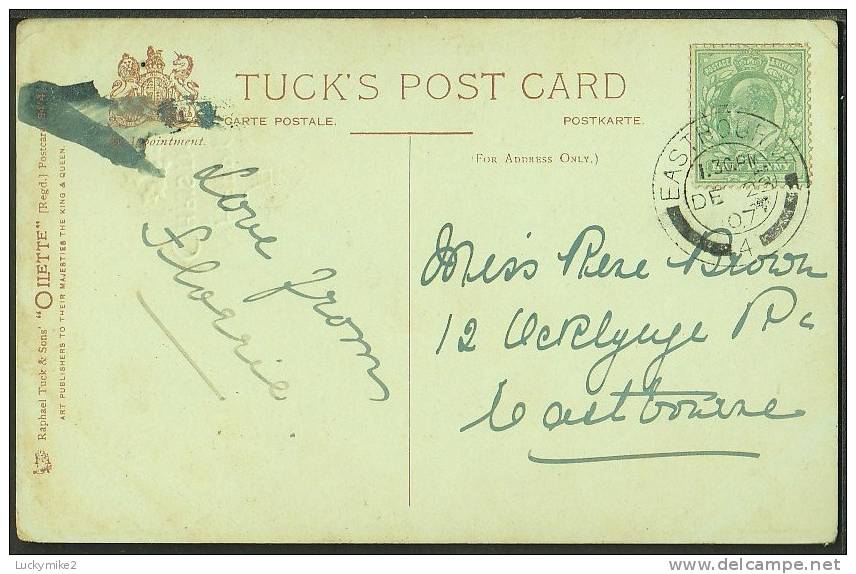 TUCK'S POST CARD
CARTE POSTALE.
POSTKARTE.
(FOR ADDRESS ONLY.)
By Appointment.
Raphael Tuck & Sons' "OILETTE" [Regd.] Postcard
ART PUBLISHERS TO THEIR MAJESTIES THE KING & QUEEN.
POSTAGE & REVENUE
EASTBOURNE
1.30PM
DE
07
A
Love from
Florrie
Miss Rene Brown
12 Rd
Eastbourne
Luckymike2
©delcampe.net